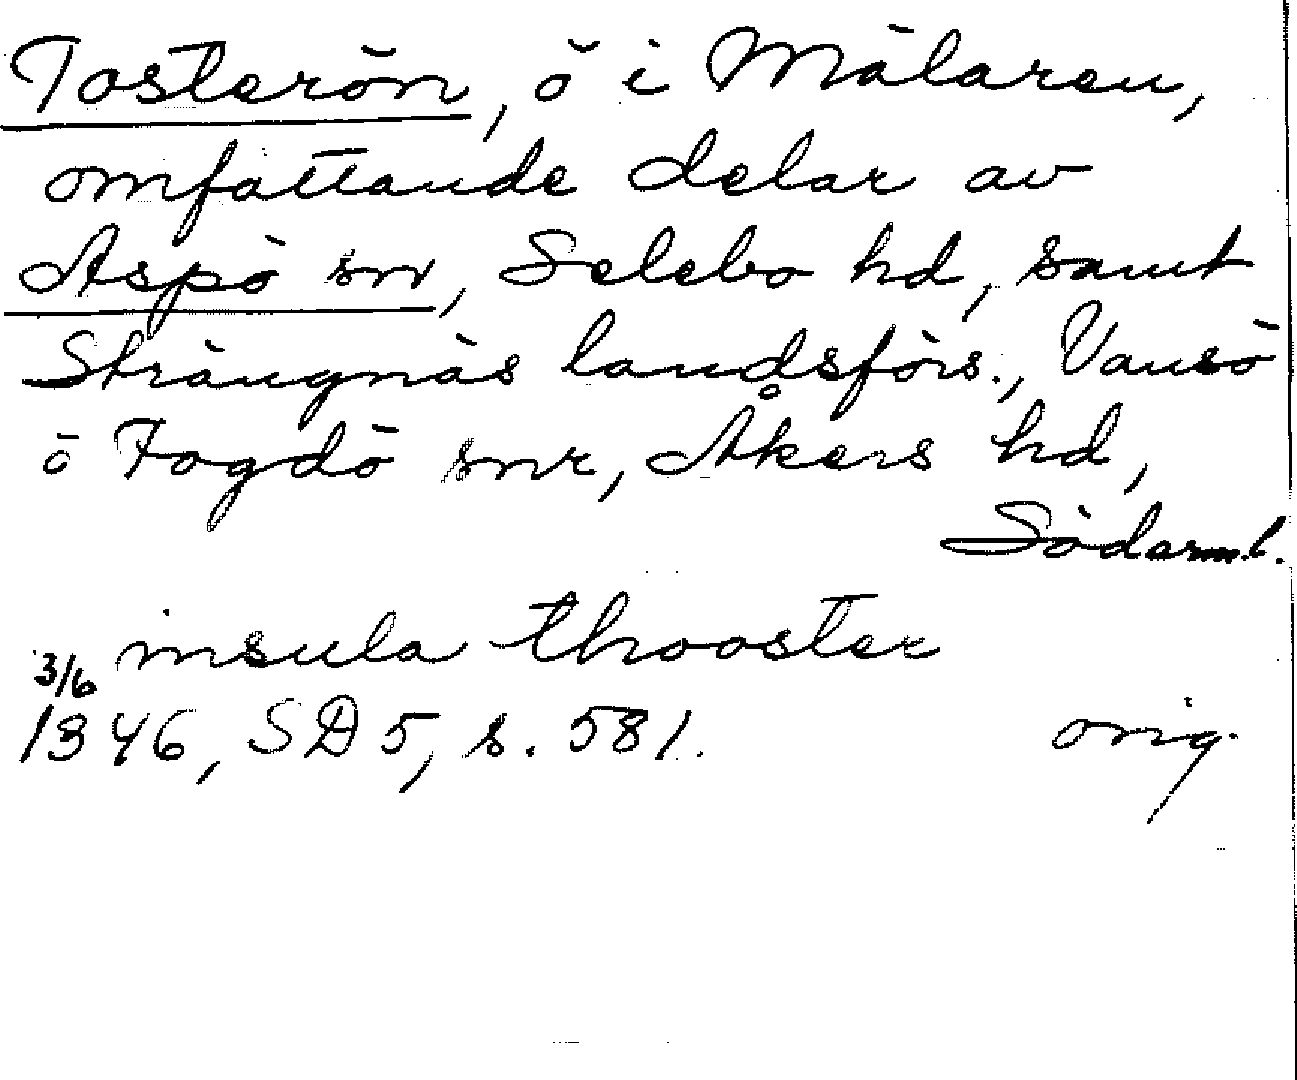 Tosterön, ö i Mälaren,
omfattande delar av
Aspö sn, Selebo hd, samt
Strängnäs landsförs., Vansö
o Fogdö snr, Åkers hd,
Söderml.
3/6 insula thooster
1346, SD 5, s. 581. orig.